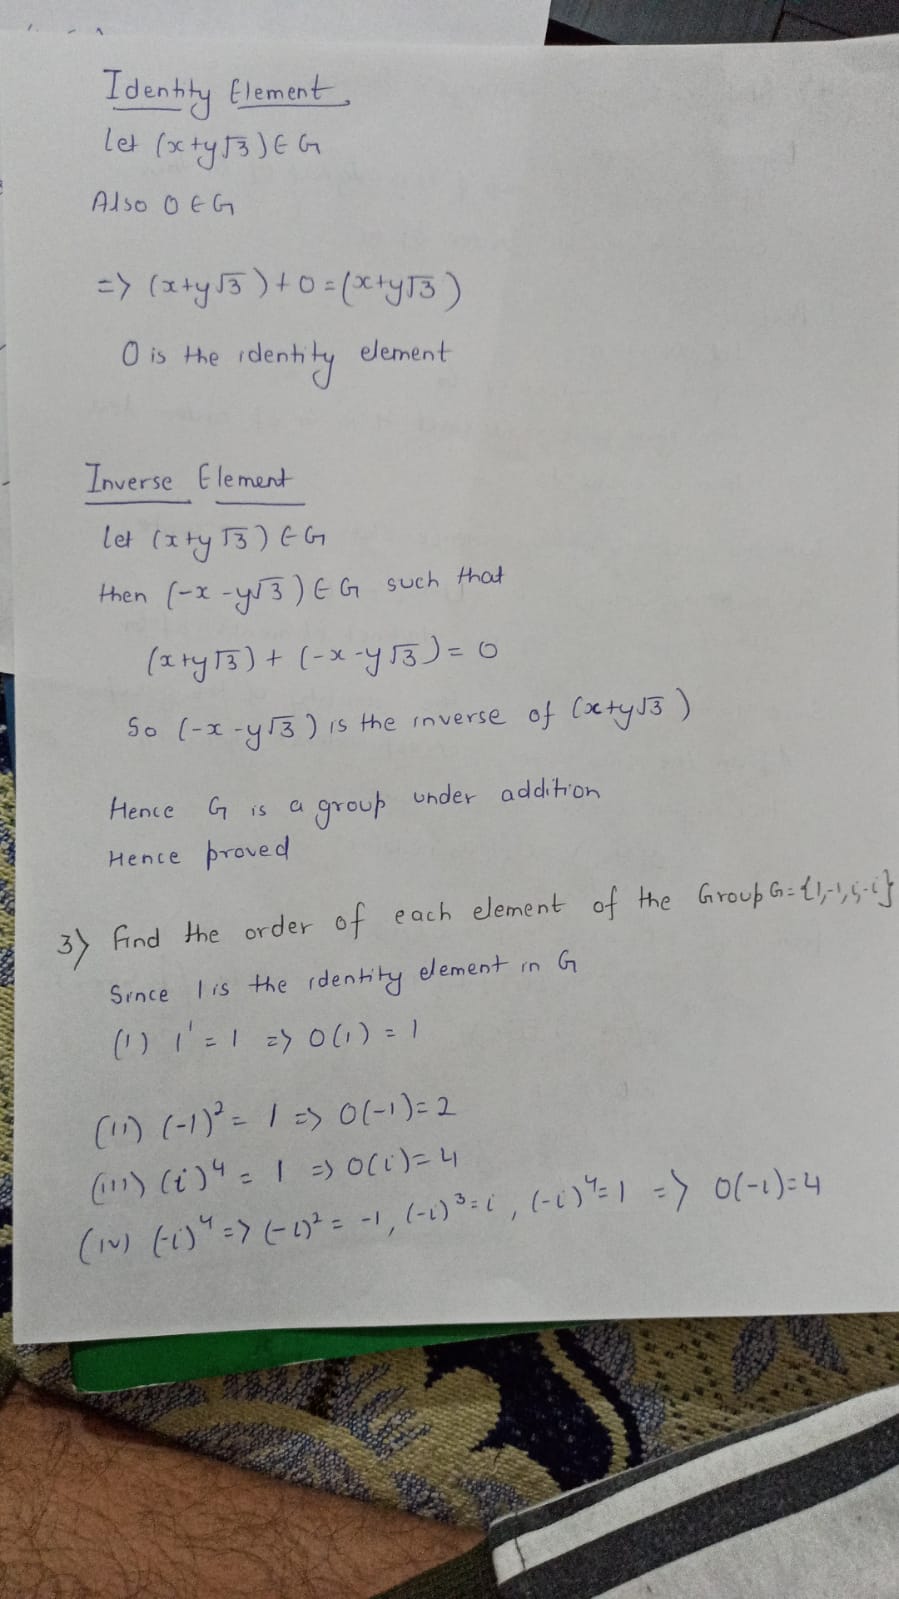 Identity Element
Let (x+y√3) ∈ G
Also 0 ∈ G
=> (x+y√3)+0=(x+y√3)
0 is the identity element
Inverse Element
let (x+y√3) ∈ G
then (-x-y√3) ∈ G such that
(x+y√3) + (-x-y√3) = 0
So (-x-y√3) is the inverse of (x+y√3)
Hence G is a group under addition
Hence proved
3) find the order of each element of the Group G={1,-1,i,-i}
Since 1 is the identity element in G
(i) 1¹ = 1 => O(1) = 1
(ii) (-1)² = 1 => O(-1)=2
(iii) (i)⁴ = 1 => O(i)=4
(iv) (-i)⁴ => (-i)² = -1, (-i)³=i, (-i)⁴=1 => O(-i)=4